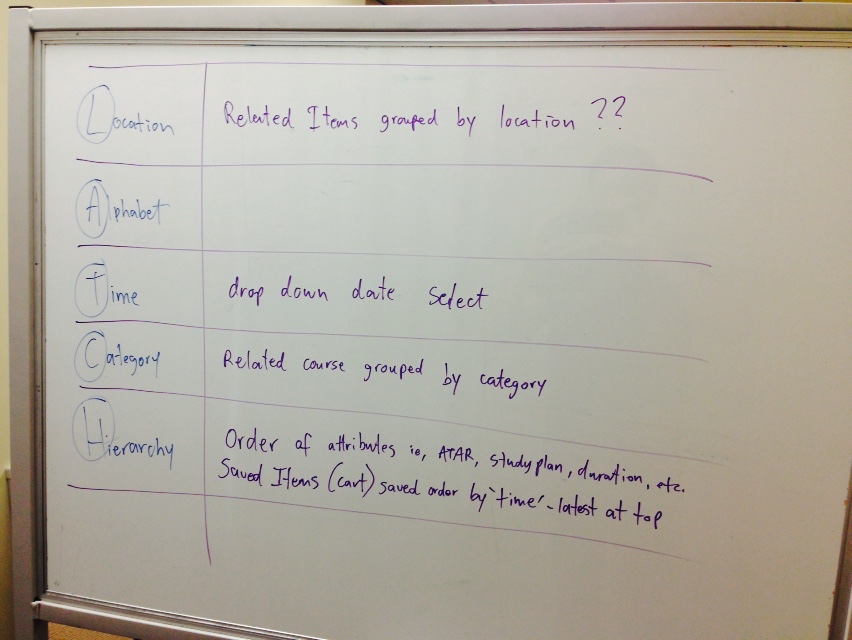 Location Related Items grouped by location ??
Alphabet
Time drop down date select
Category Related course grouped by category
Hierarchy Order of attributes ie, ATAR, study plan, duration, etc.
Saved Items (cart) saved order by 'time' - latest at top